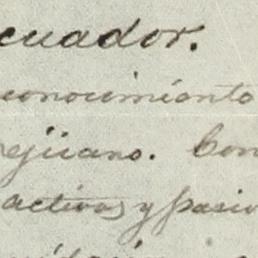 cuador.
conocimiento
egüano. Con
activos y pasiv